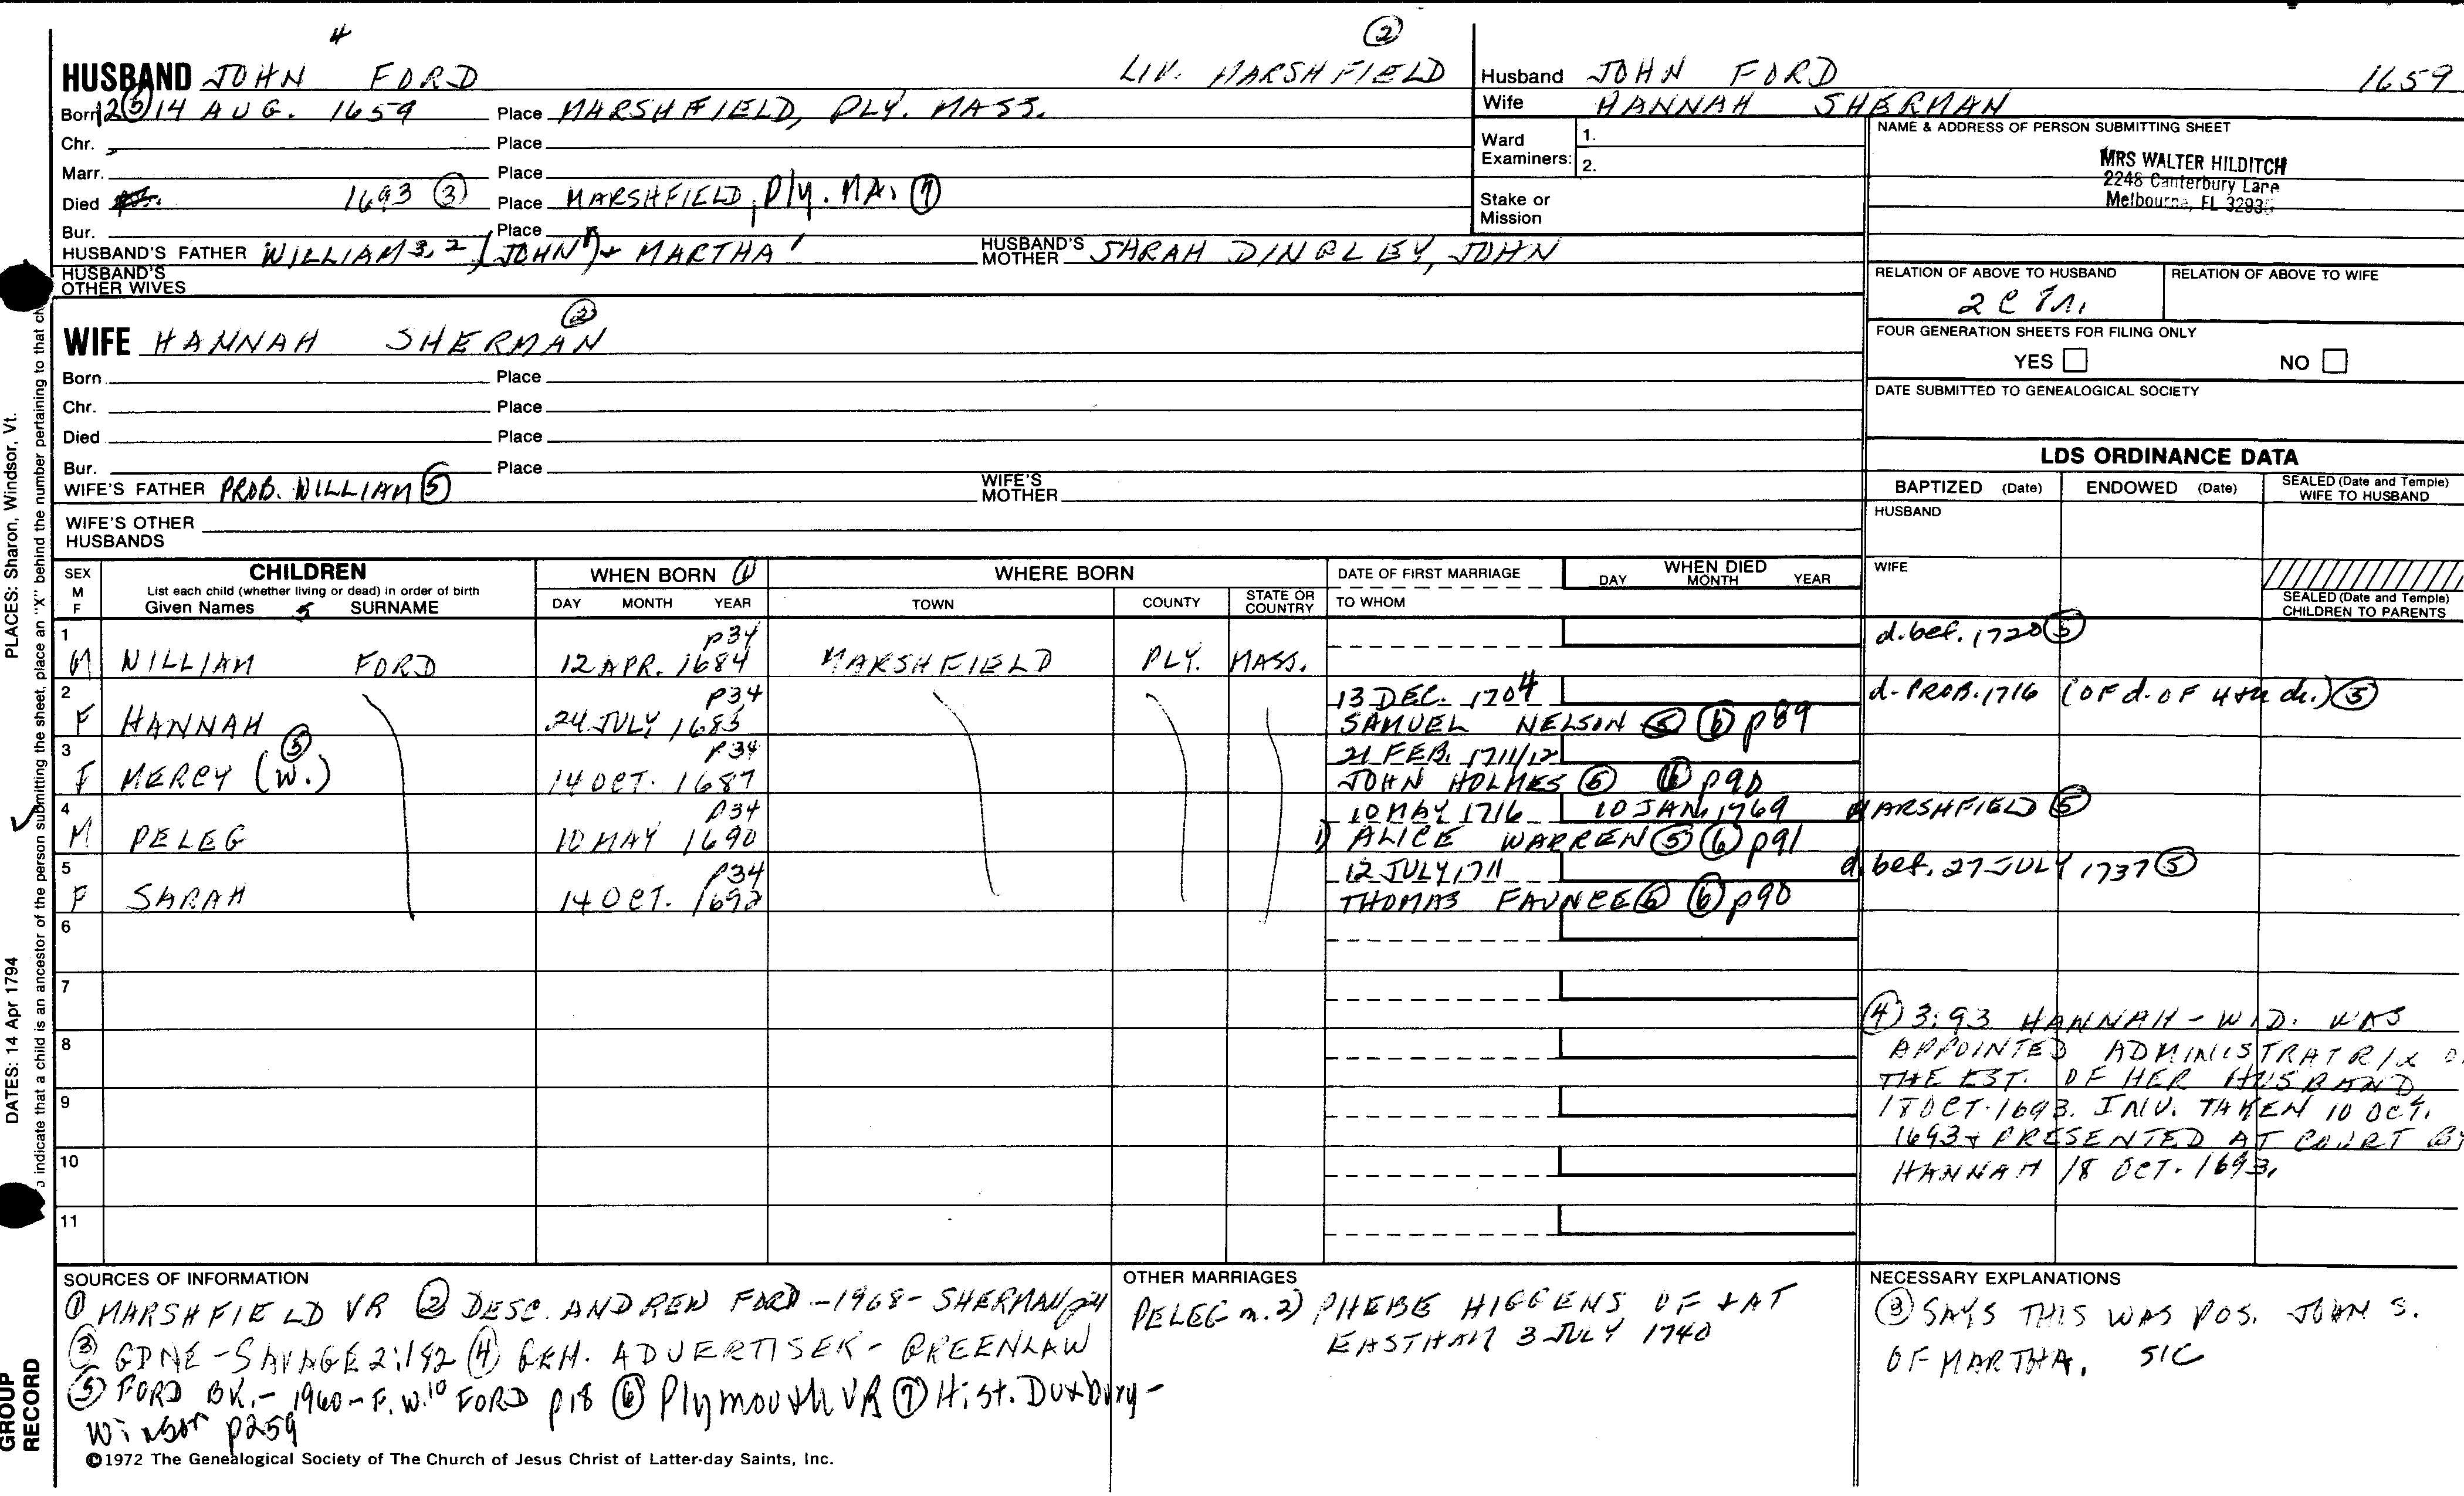 4
②
HUSBAND JOHN FORD LIV. MARSHFIELD
Husband JOHN FORD 1659
Born 12⑤14 AUG. 1659 Place MARSHFIELD, PLY. MASS.
Wife HANNAH SHERMAN
Chr. Place
Marr. Place
Died 1693 ③ Place MARSHFIELD, Ply. MA. ⑦
Bur. Place
Ward Examiners: 1.
2.
Stake or Mission
NAME & ADDRESS OF PERSON SUBMITTING SHEET
MRS WALTER HILDITCH
2248 Canterbury Lane
Melbourne, FL
HUSBAND'S FATHER WILLIAM 3, 2, (JOHN 1) + MARTHA 1 HUSBAND'S MOTHER SARAH DINGLEY, JOHN
HUSBAND'S OTHER WIVES
RELATION OF ABOVE TO HUSBAND
RELATION OF ABOVE TO WIFE
FOUR GENERATION SHEETS FOR FILING ONLY
YES NO
DATE SUBMITTED TO GENEALOGICAL SOCIETY
②
WIFE HANNAH SHERMAN
Born Place
Chr. Place
Died Place
Bur. Place
WIFE'S FATHER PROB. WILLIAM ⑤ WIFE'S MOTHER
WIFE'S OTHER HUSBANDS
LDS ORDINANCE DATA
BAPTIZED (Date) ENDOWED (Date) SEALED (Date and Temple) WIFE TO HUSBAND
HUSBAND
WIFE
SEALED (Date and Temple) CHILDREN TO PARENTS
SEX M F
CHILDREN
List each child (whether living or dead) in order of birth
Given Names 5 SURNAME
WHEN BORN ①
DAY MONTH YEAR
WHERE BORN
TOWN COUNTY STATE OR COUNTRY
DATE OF FIRST MARRIAGE
TO WHOM
WHEN DIED
DAY MONTH YEAR
1 p34 d. bef. 1720 ⑤
M WILLIAM FORD 12 APR. 1684 MARSHFIELD PLY. MASS.
2 p34 13 DEC. 1704 d. PROB. 1716 (OF d. OF 4th ch.) ⑤
F HANNAH 24 JULY 1685 SAMUEL NELSON ⑤ ⑥ p89
3 p34 21 FEB. 1711/12
F MERCY (W.) ⑤ 14 OCT. 1687 JOHN HOLMES ⑤ ⑥ p90
4 p34 10 MAY 1716 10 JAN. 1769 MARSHFIELD ⑤
M PELEG 10 MAY 1690 1) ALICE WARREN ⑤ ⑥ p91
5 p34 12 JULY 1711 d. bef. 27 JULY 1737 ⑤
F SARAH 14 OCT. 1692 THOMAS FAUNCE ⑤ ⑥ p90
6
7
8
9
10
11
④ 3:93 HANNAH - WID. WAS
APPOINTED ADMINISTRATRIX
THE EST. OF HER HUSBAND
18 OCT. 1693. INV. TAKEN 10 OCT.
1693 + PRESENTED AT COURT BY
HANNAH 18 OCT. 1693.
SOURCES OF INFORMATION
① MARSHFIELD VR ② DESC. ANDREW FORD - 1968 - SHERMAN p24
③ GDNE - SAVAGE 2:182 ④ GEN. ADVERTISER - GREENLAW
⑤ FORD BK. - 1960 - F. W. 10 FORD p18 ⑥ Plymouth VR ⑦ Hist. Duxbury -
Winsor p259
OTHER MARRIAGES
PELEG m. 2) PHEBE HIGGENS OF + AT
EASTHAM 3 JULY 1740
NECESSARY EXPLANATIONS
③ SAYS THIS WAS POS. JOHN S.
OF MARTHA. SIC
©1972 The Genealogical Society of The Church of Jesus Christ of Latter-day Saints, Inc.
PLACES: Sharon, Windsor, Vt.
DATES: 14 Apr 1794
indicate that a child is an ancestor of the person submitting the sheet, place an "X" behind the number pertaining to that
GROUP RECORD